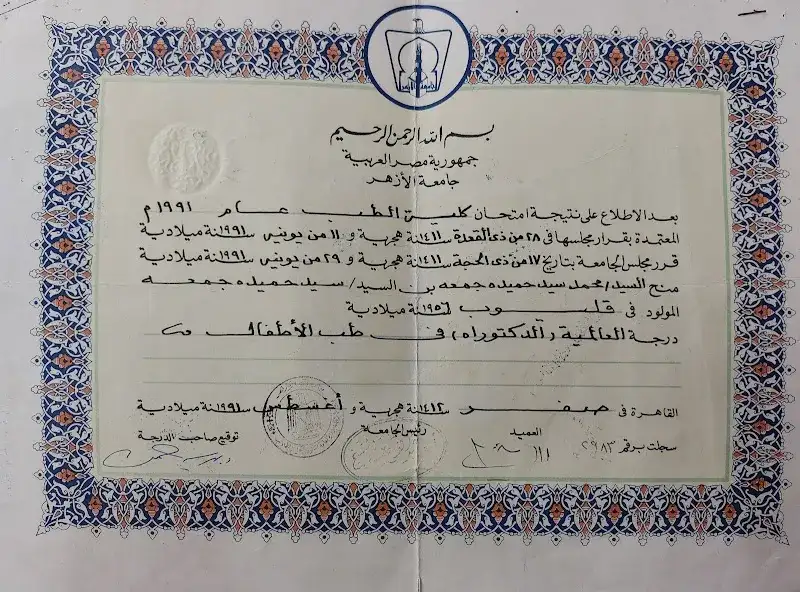 بسم الله الرحمن الرحيم
جمهورية مصر العربية
جامعة الأزهر
بعد الاطلاع على نتيجة امتحان كلية الطب عام ١٩٩١م
المعتمدة بقرار مجلسها في ٢٨ من ذى القعدة سنة ١٤١١ هجرية و ١١ من يونيه سنة ١٩٩١ ميلادية
قرر مجلس الجامعة بتاريخ ١٧ من ذى الحجة سنة ١٤١١ هجرية و ٢٩ من يونيه سنة ١٩٩١ ميلادية
منح السيد/ محمد سيد حميده جمعه بن السيد/ سيد حميده جمعه
المولود في قليوب سنة ١٩٥٦ ميلادية
درجة العالمية (الدكتوراه) في طب الأطفال
القاهرة في صفر سنة ١٤١٢ هجرية و أغسطس سنة ١٩٩١ ميلادية
سجلت برقم ٢٩٨٣ العميد رئيس الجامعة توقيع صاحب الدرجة